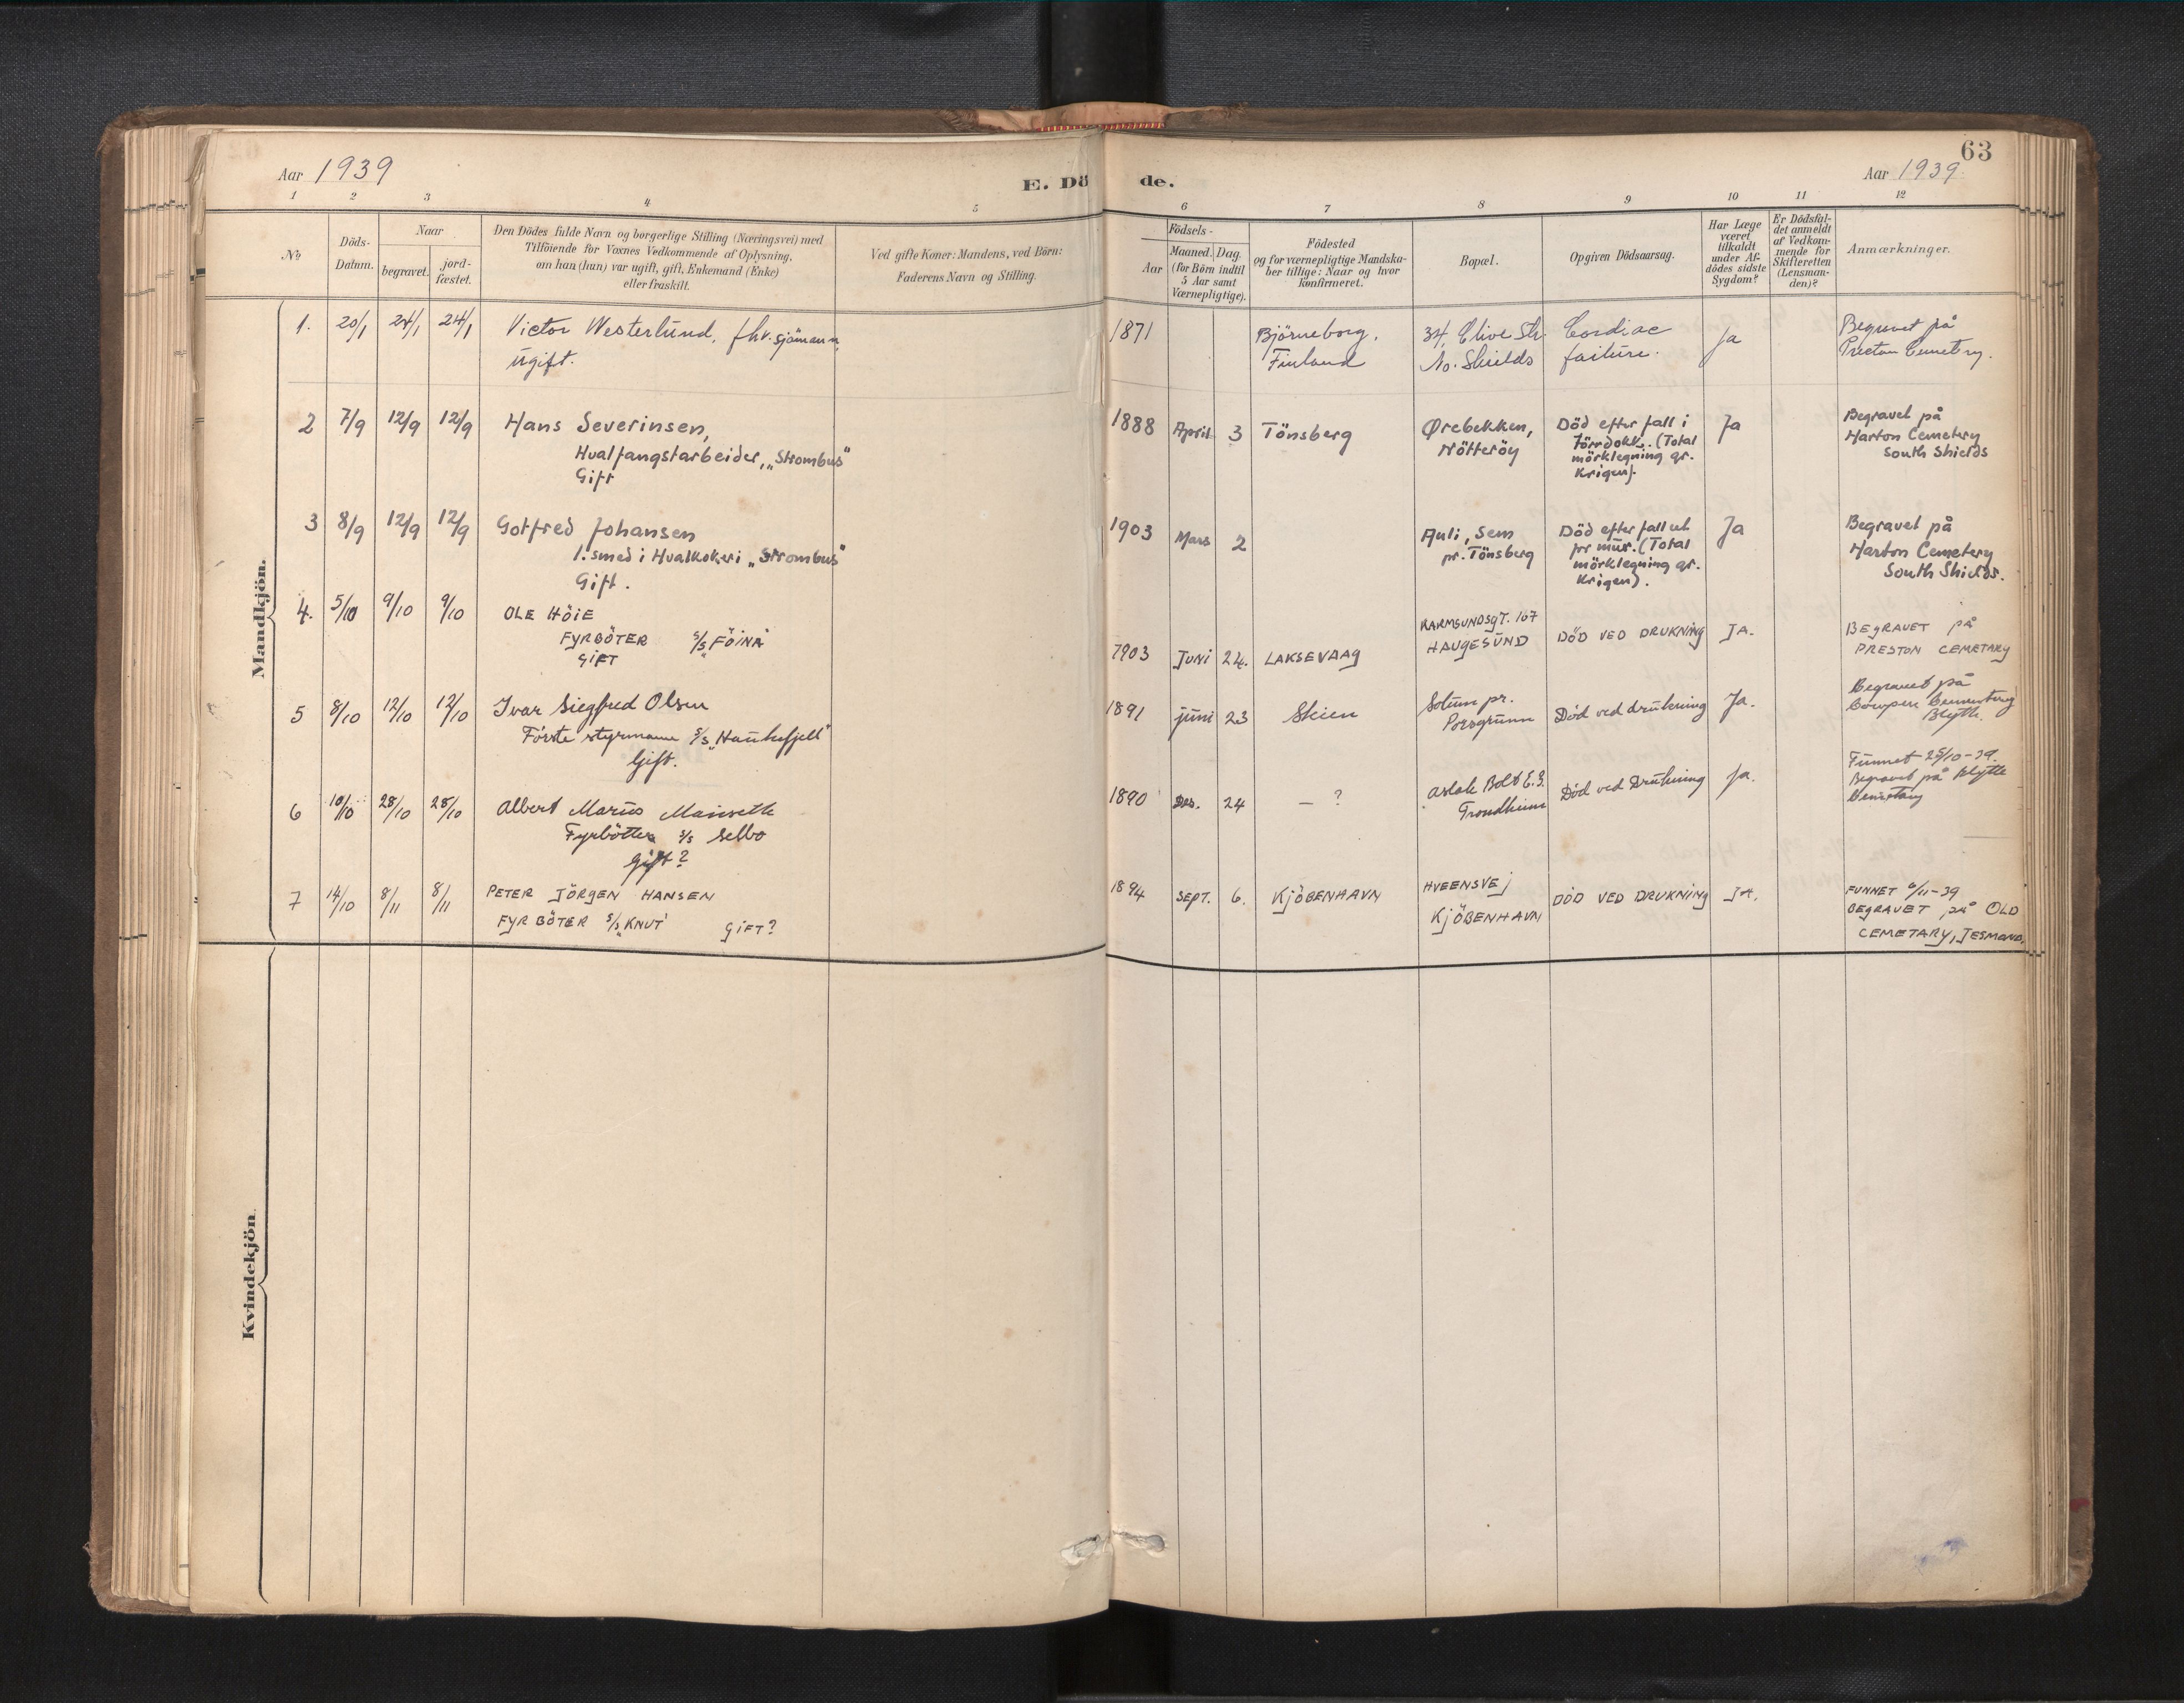 63
Aar 1939
E. Döde.
Aar 1939
1 2 3 4 5 6 7 8 9 10 11 12
No
Döds-
Datum.
Naar
begravet.
jord-
fæstet.
Den Dödes fulde Navn og borgerlige Stilling (Næringsvei) med
Tilföiende for Voxnes Vedkommende af Oplysning,
om han (hun) var ugift, gift, Enkemand (Enke)
eller fraskilt.
Ved gifte Koner: Mandens, ved Börn:
Faderens Navn og Stilling.
Födsels-
Aar
Maaned. Dag.
(for Börn indtil
5 Aar samt
Værnepligtige).
Födested
og for værnepligtige Mandska-
ber tillige: Naar og hvor
konfirmeret.
Bopæl.
Opgiven Dödsaarsag.
Har Læge
været
tilkaldt
under Af-
dödes sidste
Sygdom?
Er Dödsfal-
det anmeldt
af Vedkom-
mende for
Skifteretten
(Lensman-
den)?
Anmærkninger.
Mandkjön.
1. 20/1 24/1 24/1
Victor Westerlund, fhv. sjömann,
ugift.
1871
Björneborg,
Finland
34, Clive Str.
No. Shields
Cardiac
failure.
Ja
Begravet på
Preston Cemetry.
2 7/9 12/9 12/9
Hans Severinsen,
Hvalfangstarbeider, „Strombus"
Gift
1888 April 3
Tönsberg
Ørebekken,
Nötteröy
Död efter fall i
törrdokk. (Total
mörklegning gr.
Krigen).
Ja
Begravet på
Harton Cemetery
South Shields
3 8/9 12/9 12/9
Gotfred Johansen
1. smed i Hvalkokeri „Strombus"
Gift.
1903 Mars 2
Auli, Sem
pr. Tönsberg
Död efter fall ut
pr mur. (Total
mörklegning gr.
Krigen).
Ja
Begravet på
Harton Cemetery
South Shields.
4. 5/10 9/10 9/10
OLE HÖIE
FYRBÖTER S/S „FÖINA"
GIFT
1903 JUNI 24.
LAKSEVAAG
KARMSUNDSGT. 167
HAUGESUND
DÖD VED DRUKNING
JA.
BEGRAVET på
PRESTON CEMETARY
5 8/10 12/10 12/10
Ivar Siegfred Olsen
Förste styrmann S/S „Haukefjell"
Gift.
1891 juni 23
Skien
Solum pr.
Porsgrunn
Död ved drukning
Ja.
Begravet på
Cowpen Cementery
Blyth.
6 10/10 28/10 28/10
Albert Marius Mainseth
Fyrbötter S/S Selbo
Gift?
1890 Des. 24
— ?
Aslak Bolt E.3.
Trondheim
Död ved Drukning
Ja.
Funnet 25/10-39.
Begravet på Blythe
Cemetary
7 14/10 8/11 8/11
PETER JÖRGEN HANSEN
FYRBÖTER S/S „KNUT" GIFT?
1894 SEPT. 6.
KJÖBENHAVN
HVEENSVEJ
KJÖBENHAVN
DÖD VED DRUKNING
JA.
FUNNET 6/11-39
BEGRAVET på OLD
CEMETARY, JESMOND.
Kvindekjön.